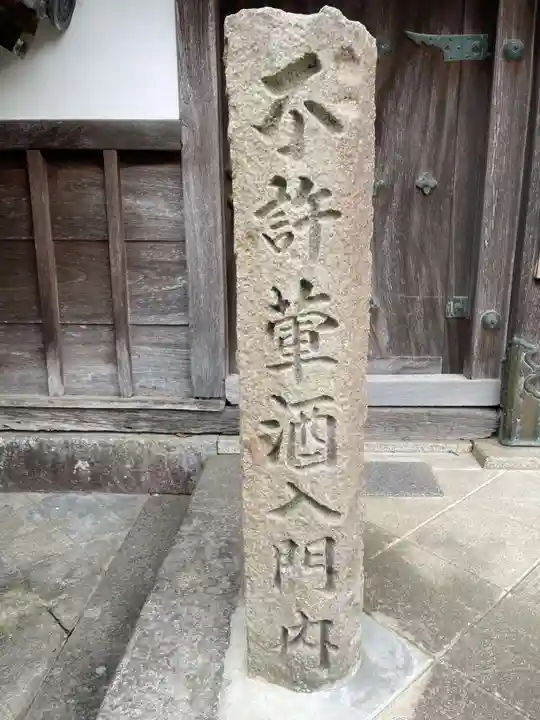 不許葷酒入門内